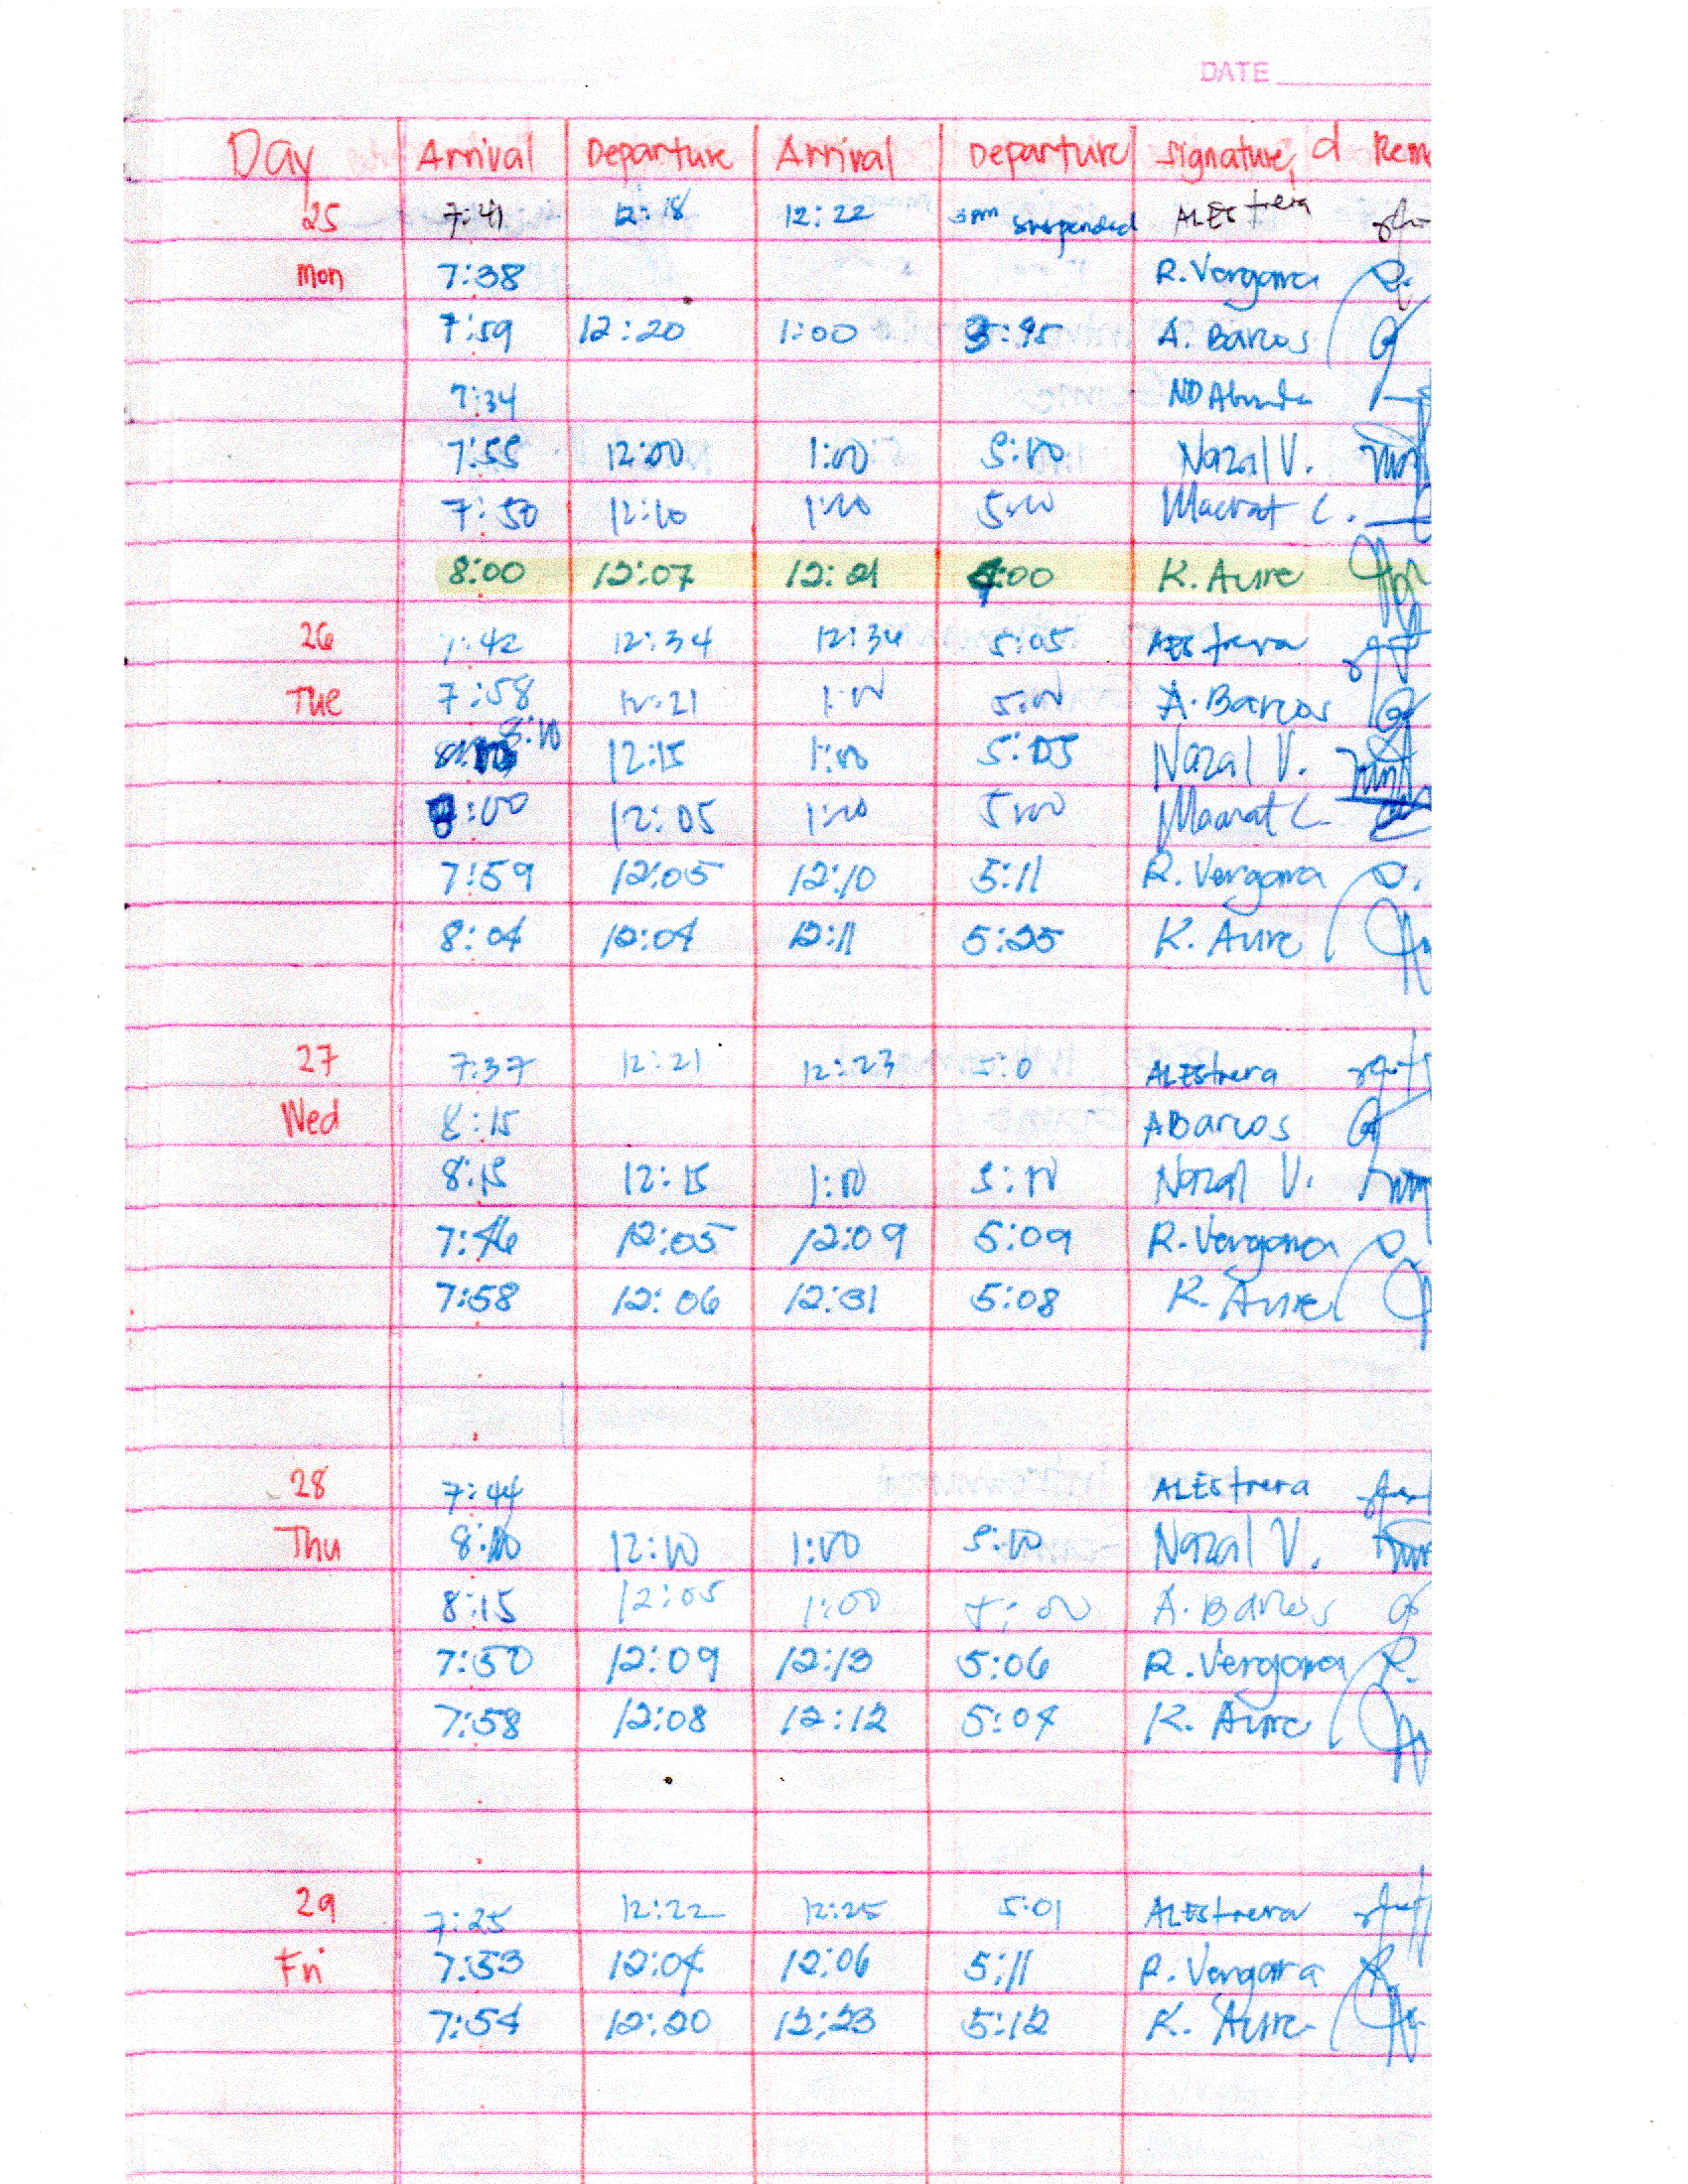 DATE
Day Arrival Departure Arrival Departure Signature, d Rem
25 7:41 12:18 12:22 3pm suspended ALEstrera
Mon 7:38 R. Vergara
7:59 12:20 1:00 A. Barcos
7:34 ND Abunda
7:55 12:00 1:00 5:00 Nazal V.
7:50 12:10 1:00 5:00
8:00 12:07 12:21 4:00 K. Aure
26 7:42 12:34 12:34 5:05 ALEstrera
Tue 7:58 12:21 1:00 5:00 A. Barcos
8:10 12:15 1:00 5:05 Nazal V.
8:00 12:05 1:00 5:00
7:59 12:05 12:10 5:11 R. Vergara
8:04 12:04 12:11 5:25 K. Aure
27 7:37 12:21 12:23 5:0 ALEstrera
Wed 8:15 ABarcos
8:15 12:15 1:00 5:00 Nazal V.
7:46 12:05 12:09 5:09 R. Vergara
7:58 12:06 12:31 5:08 K. Aure
28 7:44 ALEstrera
Thu 8:10 12:10 1:00 5:00 Nazal V.
8:15 12:05 1:00 5:00 A. Barcos
7:50 12:09 12:13 5:06 R. Vergara
7:58 12:08 12:12 5:04 K. Aure
29 7:25 12:22 12:25 5:01 ALEstrera
Fri 7:53 12:04 12:06 5:11 R. Vergara
7:54 12:20 12:23 5:12 K. Aure